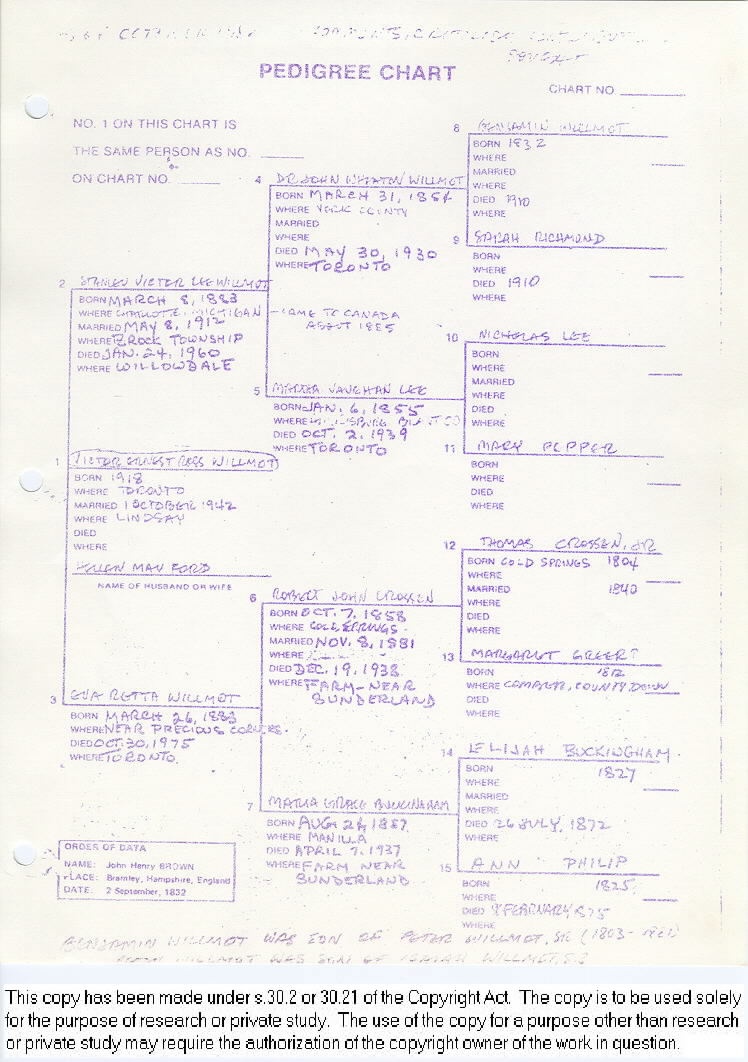 PEDIGREE CHART
CHART NO.
NO. 1 ON THIS CHART IS
THE SAME PERSON AS NO.
ON CHART NO.
8 BENJAMIN WILLMOT
BORN 1832
WHERE
MARRIED
WHERE
DIED 1910
WHERE
4 DR JOHN WHEATON WILLMOT
BORN MARCH 31, 1854
WHERE YORK COUNTY
MARRIED
WHERE
DIED MAY 30, 1930
WHERE TORONTO
9 SARAH RICHMOND
BORN
WHERE
DIED 1910
WHERE
2 STANLEY VICTOR LEE WILLMOT
BORN MARCH 8, 1883
WHERE CHARLOTTE, MICHIGAN
MARRIED MAY 8, 1912
WHERE BROCK TOWNSHIP
DIED JAN. 24, 1960
WHERE WILLOWDALE
CAME TO CANADA
ABOUT 1885
10 NICHOLAS LEE
BORN
WHERE
MARRIED
WHERE
DIED
WHERE
5 VAUGHAN LEE
BORN JAN. 6, 1855
WHERE
DIED OCT. 2, 1939
WHERE TORONTO
11 MARY PEPPER
BORN
WHERE
DIED
WHERE
1 VICTOR ERNEST ROSS WILLMOT
BORN 1918
WHERE TORONTO
MARRIED 1 OCTOBER 1942
WHERE LINDSAY
DIED
WHERE
HELEN MAY FORD
NAME OF HUSBAND OR WIFE
12 THOMAS CROSSEN, JR
BORN COLD SPRINGS 1804
WHERE
MARRIED 1840
WHERE
DIED
WHERE
6 ROBERT JOHN CROSSEN
BORN OCT. 7, 1858
WHERE COLD SPRINGS
MARRIED NOV. 8, 1881
WHERE
DIED DEC. 19, 1938
WHERE FARM-NEAR
SUNDERLAND
13 MARGARET GREER
BORN 1812
WHERE COMBER, COUNTY DOWN
DIED
WHERE
3 EVA RETTA WILLMOT
BORN MARCH 26, 1883
WHERE NEAR PRECIOUS CORNERS
DIED OCT. 30, 1975
WHERE TORONTO
14 ELIJAH BUCKINGHAM
BORN 1827
WHERE
MARRIED
WHERE
DIED 26 JULY, 1872
WHERE
7 GRACE BUCKINGHAM
BORN AUG
WHERE MANILLA
DIED APRIL 7, 1937
WHERE FARM NEAR
SUNDERLAND
15 ANN PHILIP
BORN 1825
WHERE
DIED FEBRUARY
WHERE
ORDER OF DATA
NAME: John Henry BROWN
PLACE: Bramley, Hampshire, England
DATE: 2 September, 1832
BENJAMIN WILLMOT WAS SON OF PETER WILLMOT, SR (1803-
WILLMOT WAS SON OF ISAIAH WILLMOT, SR
This copy has been made under s.30.2 or 30.21 of the Copyright Act. The copy is to be used solely
for the purpose of research or private study. The use of the copy for a purpose other than research
or private study may require the authorization of the copyright owner of the work in question.